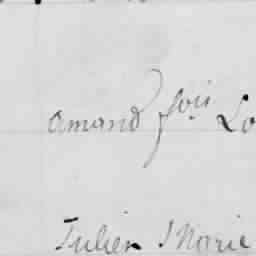 amand fois Lo
Julien Marie